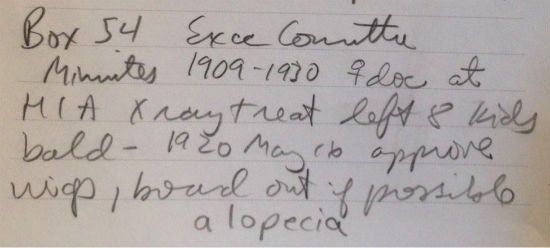 Box 54 Exce Committe
Minutes 1909-1930 ♀doc at
HIA Xray treat left 8 kids
bald - 1920 May 16 approve
wigs, board out if possible
alopecia